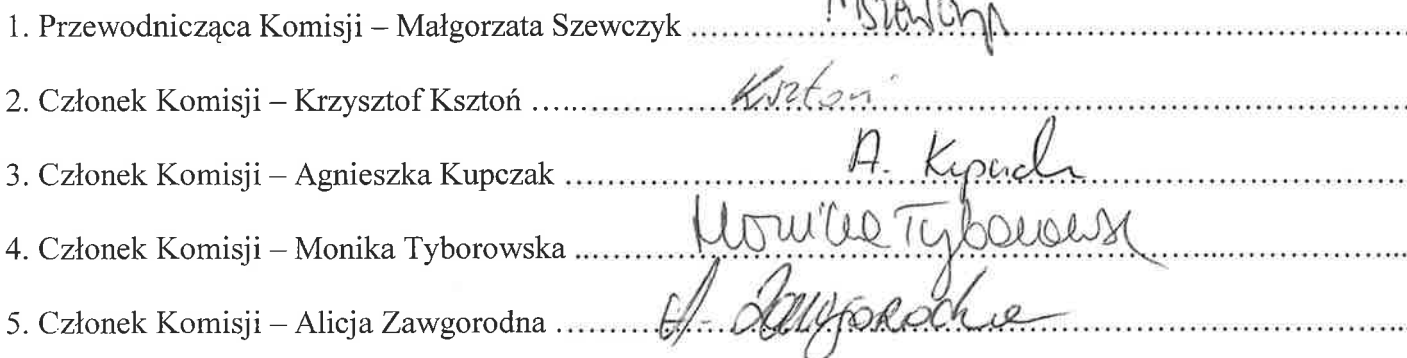 1. Przewodnicząca Komisji – Małgorzata Szewczyk ....................
2. Członek Komisji – Krzysztof Ksztoń .................... Ksztoń ....................
3. Członek Komisji – Agnieszka Kupczak .................... A. ....................
4. Członek Komisji – Monika Tyborowska .................... Monika ....................
5. Członek Komisji – Alicja Zawgorodna .................... A. ....................